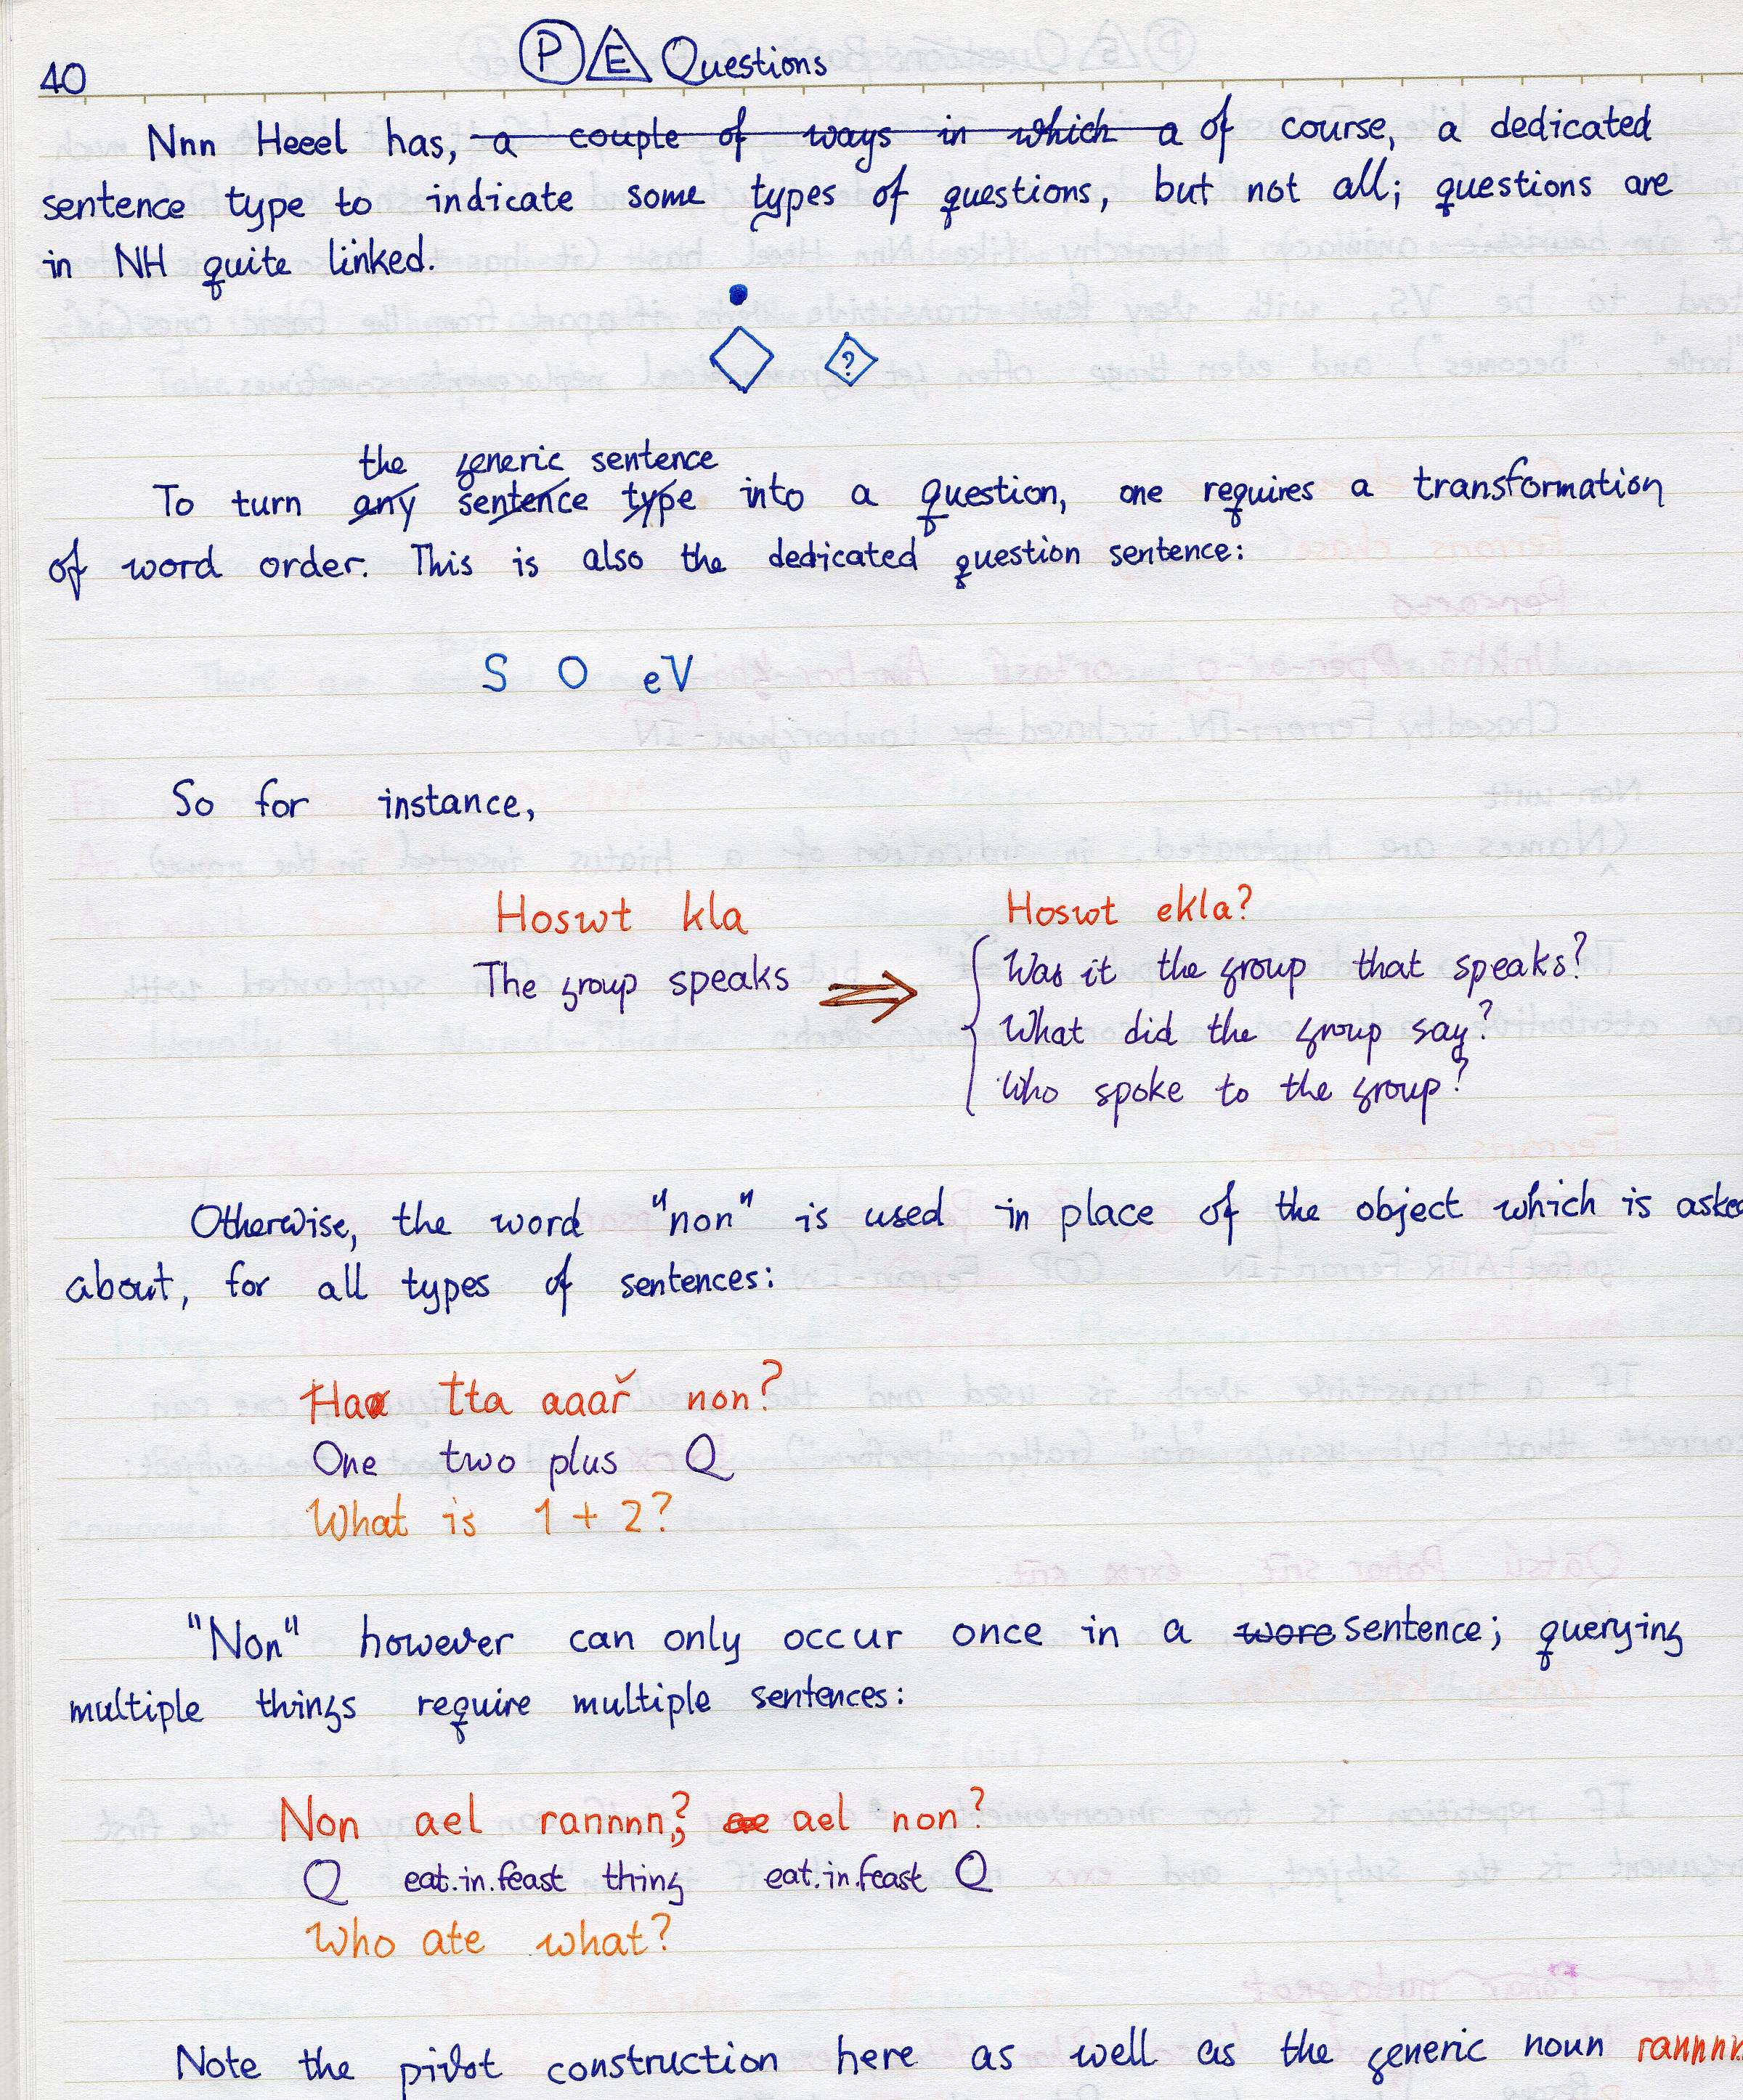 40
P E Questions
Nnn Heeel has, a couple of ways in which a of course, a dedicated
sentence type to indicate some types of questions, but not all; questions are
in NH quite linked.
?
the generic sentence
To turn any sentence type into a question, one requires a transformation
of word order. This is also the dedicated question sentence:
S O eV
So for instance,
Hoswt kla Hoswt ekla?
The group speaks ⇒ Was it the group that speaks?
What did the group say?
Who spoke to the group?
Otherwise, the word "non" is used in place of the object which is asked
about, for all types of sentences:
Haa tta aaař non?
One two plus Q
What is 1 + 2?
"Non" however can only occur once in a wore sentence; querying
multiple things require multiple sentences:
Non ael rannnn?, ae ael non?
Q eat.in.feast thing eat.in.feast Q
Who ate what?
Note the pivot construction here as well as the generic noun rannnn